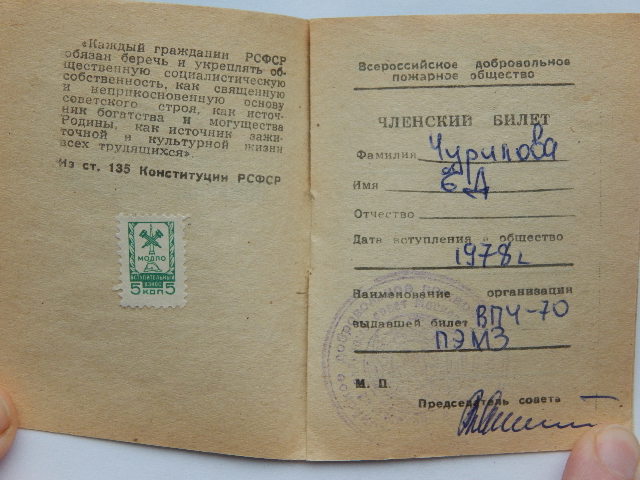 «Каждый гражданин РСФСР
обязан беречь и укреплять об-
щественную социалистическую
собственность, как священную
и неприкосновенную основу
советского строя, как источ-
ник богатства и могущества
Родины, как источник зажи-
точной и культурной жизни
всех трудящихся».
Из ст. 135 Конституции РСФСР
МОДПО
ВСТУПИТЕЛЬНЫЙ
ВЗНОС
5 КОП 5
Всероссийское добровольное
пожарное общество
ЧЛЕНСКИЙ БИЛЕТ
Фамилия Чурилова
Имя ЕД
Отчество
Дата вступления в общество
1978г
Наименование организации
выдавшей билет ВПЧ-70
ПЭМЗ
М. П.
Председатель совета